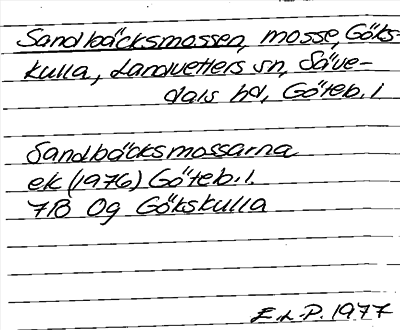 Sandbäcksmossen, mosse, Göks-
kulla, Landvetters sn, Säve-
dals hd, Göteb. l
Sandbäcksmossarna
ek (1976) Göteb. l.
7B 0g Gökskulla
E.L.P. 1977